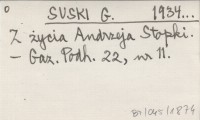 SUSKI G. 1934...
Z życia Andrzeja Stopki.
– Gaz. Podh. 22, nr 11.
87/045/1874